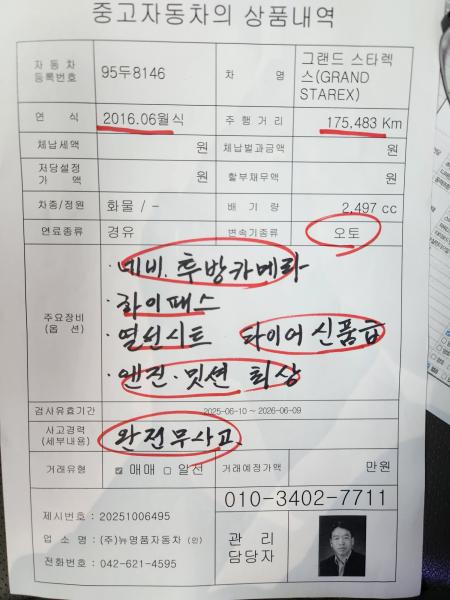 중고자동차의 상품내역
자 동 차 등록번호 95두8146 차 명 그랜드 스타렉스(GRAND STAREX)
연 식 2016.06월식 주 행 거 리 175,483 Km
체납세액 원 체납벌과금액 원
저당설정 가 액 원 할부채무액 원
차종/정원 화물 / - 배 기 량 2,497 cc
연료종류 경유 변속기종류 오토
주요장비 (옵 션)
· 네비. 후방카메라
· 하이패스
· 열선시트 타이어 신품급
· 엔진 · 밋션 최상
검사유효기간 2025-06-10 ~ 2026-06-09
사고경력 (세부내용) 완전무사고
거래유형 ☑ 매매 □ 알선 거래예정가액 만원
010-3402-7711
제시번호 : 20251006495
업 소 명 : (주)뉴명품자동차 (인)
전화번호 : 042-621-4595
관 리 담당자